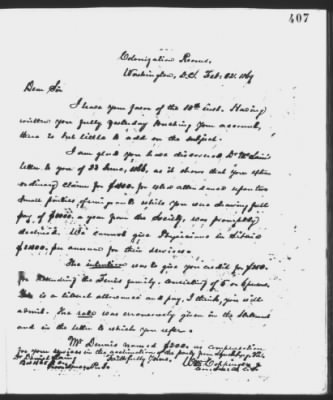 407
Colonization Rooms,
Washington, D.C. Feb. 23. 1869
Dear Sir
I have your favor of the 18th inst. Having
written you fully yesterday touching your account,
there is but little to add on the subject.
I am glad you have discovered Dr McLain's
letter to you of 23 June, 1866, as it shows that your extra-
ordinary claim for $400. for who attended upon two
small parties, of emigrants while you was drawing full
pay, of $1000. a year from the Society, was promptly
declined. We cannot give Physicians in Liberia
$1400. per annum for their services.
The intention was to give you credit for $200.
for attending the Dennis family, consisting of 5 or 6 persons.
This is a liberal allowance and pay, I think, you will
admit. The rate was erroneously given in the Statement
and in the letter to which you refer.
Mr Dennis named $200. as compensation
for your services in the acclimation of the party
Faithfully Yours,
Wm Coppinger